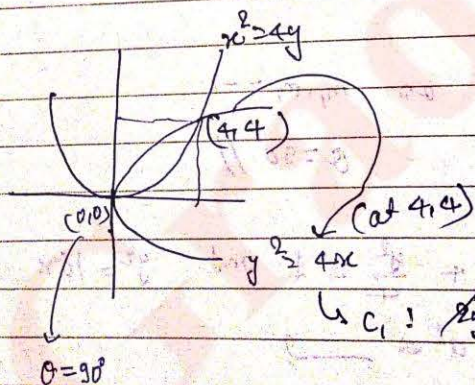 x²=4y
(4,4)
(0,0)
(at 4,4)
y²=4x
↳ C₁ :
θ=90°